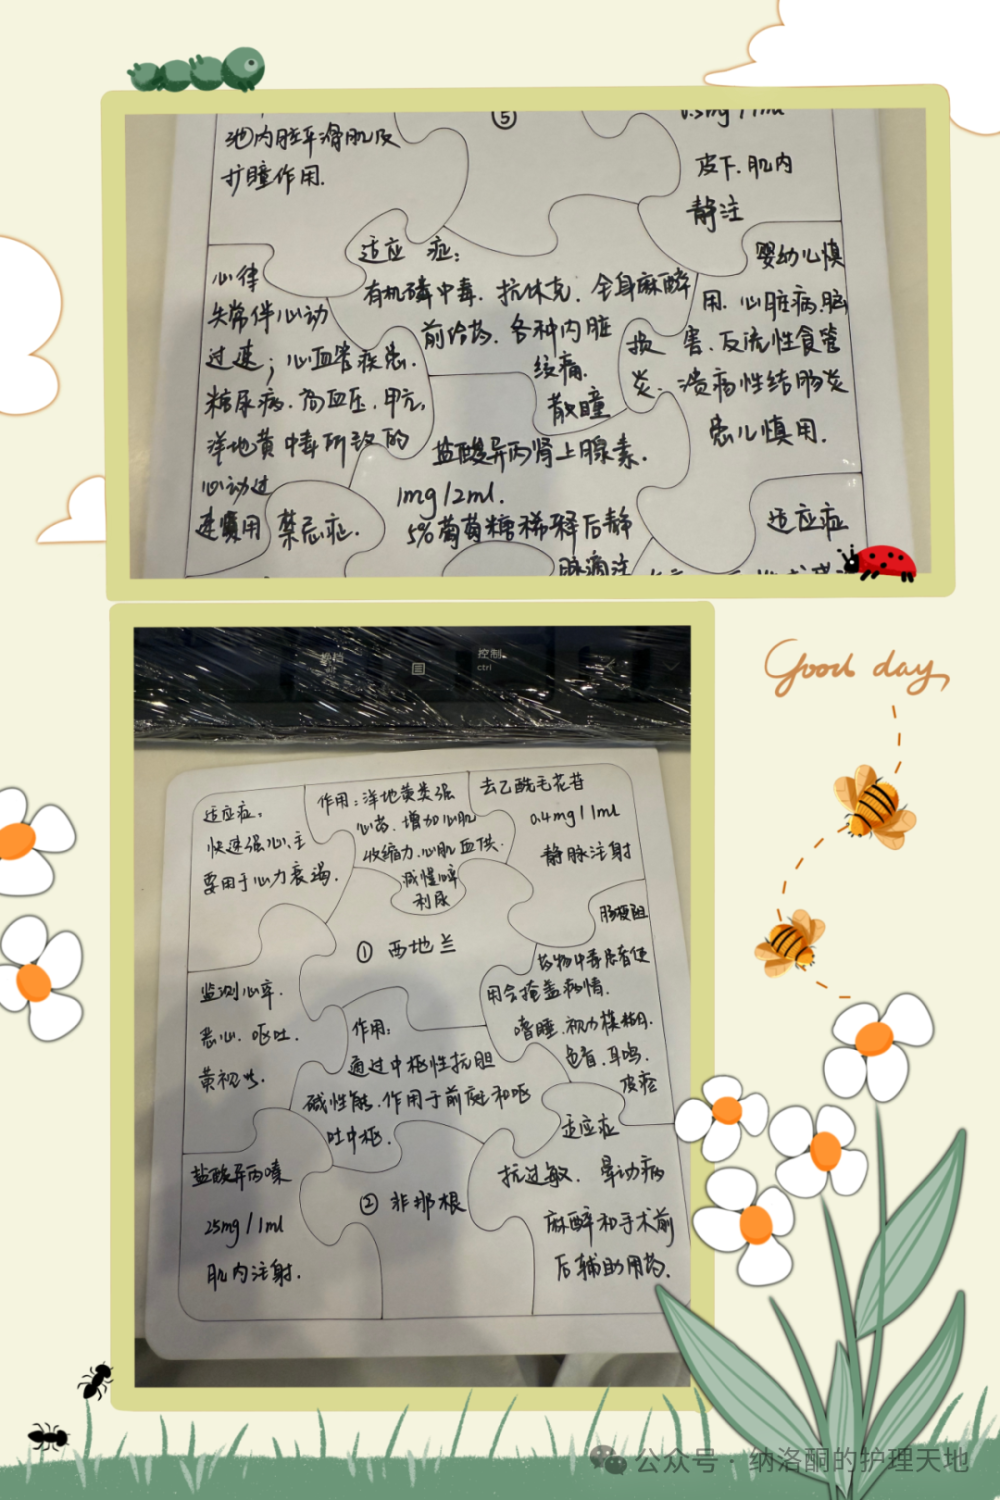 ⑤
池内腔平滑肌及
扩瞳作用.
0.5mg/1ml
皮下.肌内
静注
心律
失常伴心动
过速;心血管疾患.
糖尿病.高血压.甲亢,
洋地黄中毒所致的
心动过
速慎用
禁忌症.
适应症:
有机磷中毒.抗休克.全身麻醉
前给药.各种内脏
绞痛.
散瞳
婴幼儿慎
用.心脏病.脑
损害.反流性食管
炎.溃疡性结肠炎
患儿慎用.
盐酸异丙肾上腺素.
1mg/2ml.
5%葡萄糖稀释后静
脉滴注
适应症
Good day,
控制
ctrl
适应症,
快速强心,主
要用于心力衰竭.
作用:洋地黄类强
心药.增加心肌
收缩力.心肌血供.
减慢心率
利尿
去乙酰毛花苷
0.4mg/1ml
静脉注射
①西地兰
监测心率.
恶心.呕吐.
黄视
作用:
通过中枢性抗胆
碱性能.作用于前庭和呕
吐中枢.
肠梗阻
药物中毒患者使
用会掩盖病情.
嗜睡.视力模糊.
色盲.耳鸣.
皮疹
盐酸异丙嗪
25mg/1ml
肌内注射.
②非那根
适应症
抗过敏.晕动病
麻醉和手术前
后辅助用药.
公众号·纳洛酮的护理天地